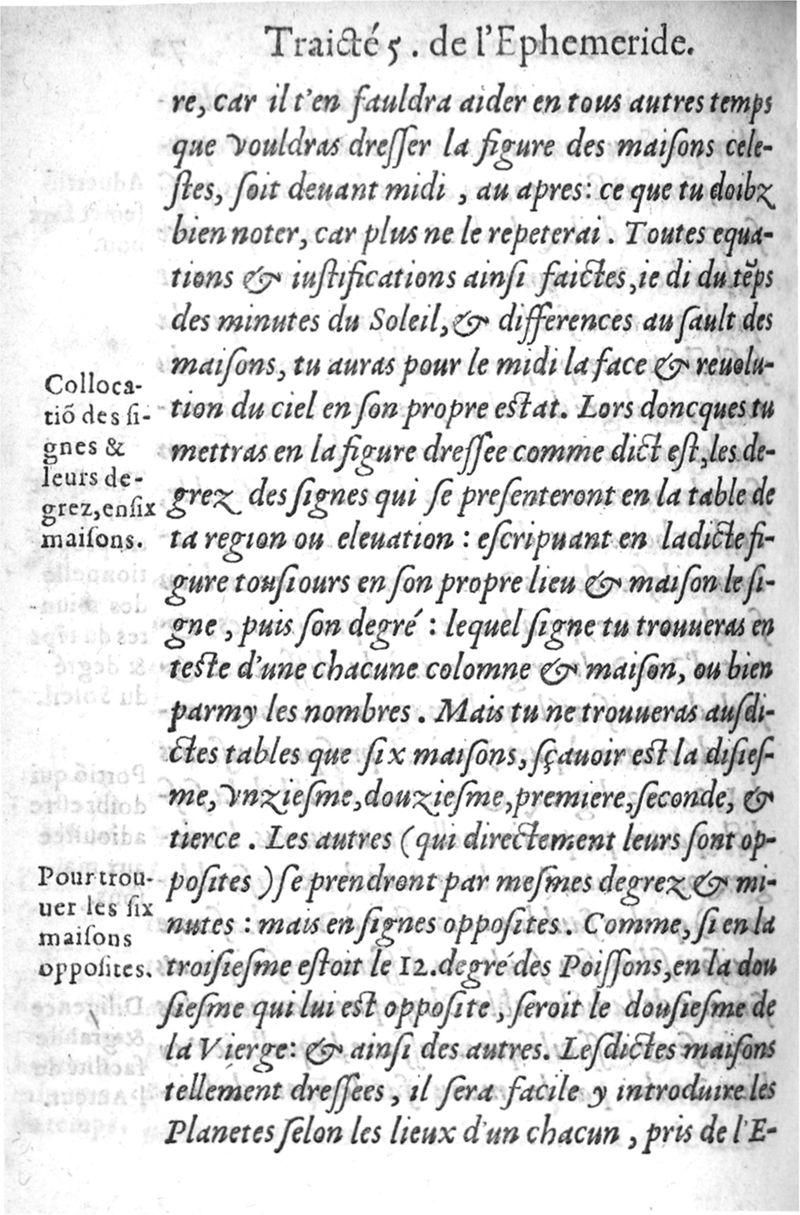 Traicté 5. de l'Ephemeride.
re, car il t'en fauldra aider en tous autres temps
que vouldras dreſſer la figure des maiſons cele-
ſtes, ſoit deuant midi , au apres: ce que tu doibz
bien noter, car plus ne le repeterai . Toutes equa-
tions & iuſtifications ainſi faictes,ie di du tẽps
des minutes du Soleil,& differences au ſault des
maiſons, tu auras pour le midi la face & reuolu-
tion du ciel en ſon propre eſtat. Lors doncques tu
mettras en la figure dreſſee comme dict eſt,les de-
grez des ſignes qui ſe preſenteront en la table de
ta region ou eleuation : eſcripuant en ladicte fi-
gure touſiours en ſon propre lieu & maiſon le ſi-
gne , puis ſon degré : lequel ſigne tu trouueras en
teſte d'une chacune colomne & maiſon, ou bien
parmy les nombres . Mais tu ne trouueras auſdi-
ctes tables que ſix maiſons, ſçauoir eſt la diſieſ-
me, vnzieſme,douzieſme,premiere,ſeconde, &
tierce . Les autres (qui directement leurs ſont op-
poſites ) ſe prendront par meſmes degrez & mi-
nutes : mais en ſignes oppoſites . Comme, ſi en la
troiſieſme eſtoit le 12.degré des Poiſſons,en la dou
ſieſme qui lui eſt oppoſite , ſeroit le douſieſme de
la Vierge: & ainſi des autres. Leſdictes maiſons
tellement dreſſees , il ſera facile y introduire les
Planetes ſelon les lieux d'un chacun , pris de l'E-
Colloca-
tiõ des ſi-
gnes &
leurs de-
grez,en ſix
maiſons.
Pour trou-
uer les ſix
maiſons
oppoſites.